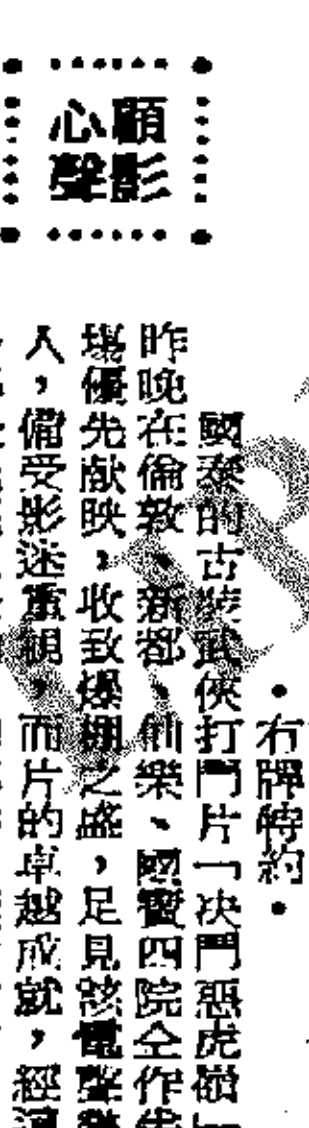 顧影
心聲
•右牌特約•
國泰的古裝武俠打鬥片「決鬥惡虎嶺」
昨晚在倫敦、新都、仙樂、國寶四院全作
場優先献映，收致爆棚之盛，足見該電聲
人，備受影迷重視，而片的卓越成就，經